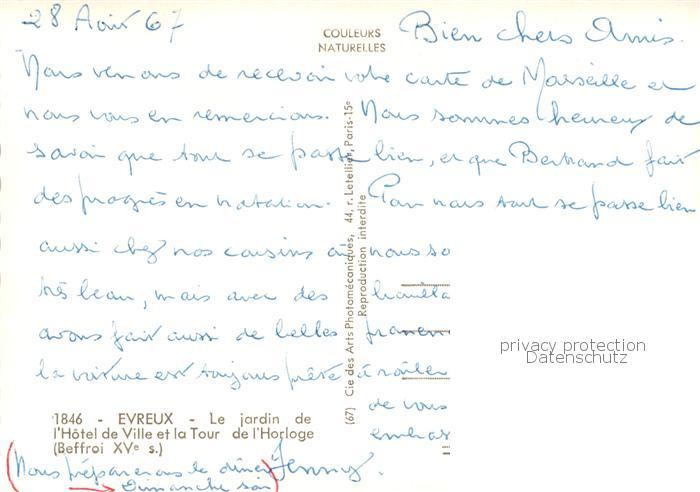 28 Août 67
COULEURS
NATURELLES
Bien chers Amis.
Nous venons de recevoir votre carte de Marseille et
nous vous en remercions. Nous sommes heureux de
savoir que tout se passe bien, et que Bertrand fait
des progrès en natation. Pour nous tout se passe bien
aussi chez nos cousins où nous so
très beau, mais avec des
avons fait aussi de belles promen
la voiture est toujours prête à rouler
de vous
embras
Jenny.
(Nous préparerons le dîner
Dimanche soir)
1846 - EVREUX - Le jardin de
l'Hôtel de Ville et la Tour de l'Horloge
(Beffroi XVe s.)
(67) Cie des Arts Photomécaniques, 44, r. Letellier, Paris-15e
Reproduction interdite
privacy protection
Datenschutz